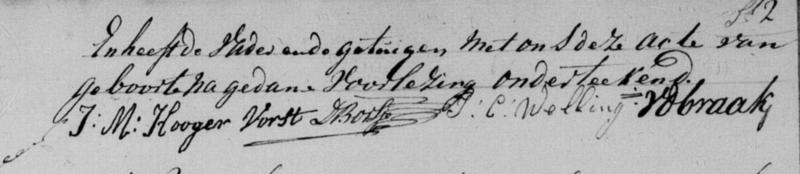 En heeft de Vader ende getuigen met ons deze acte van
geboorte na gedane Voorlezing onderteekend.
J: M: Hooger Vorst J: C: Welling VdBraak